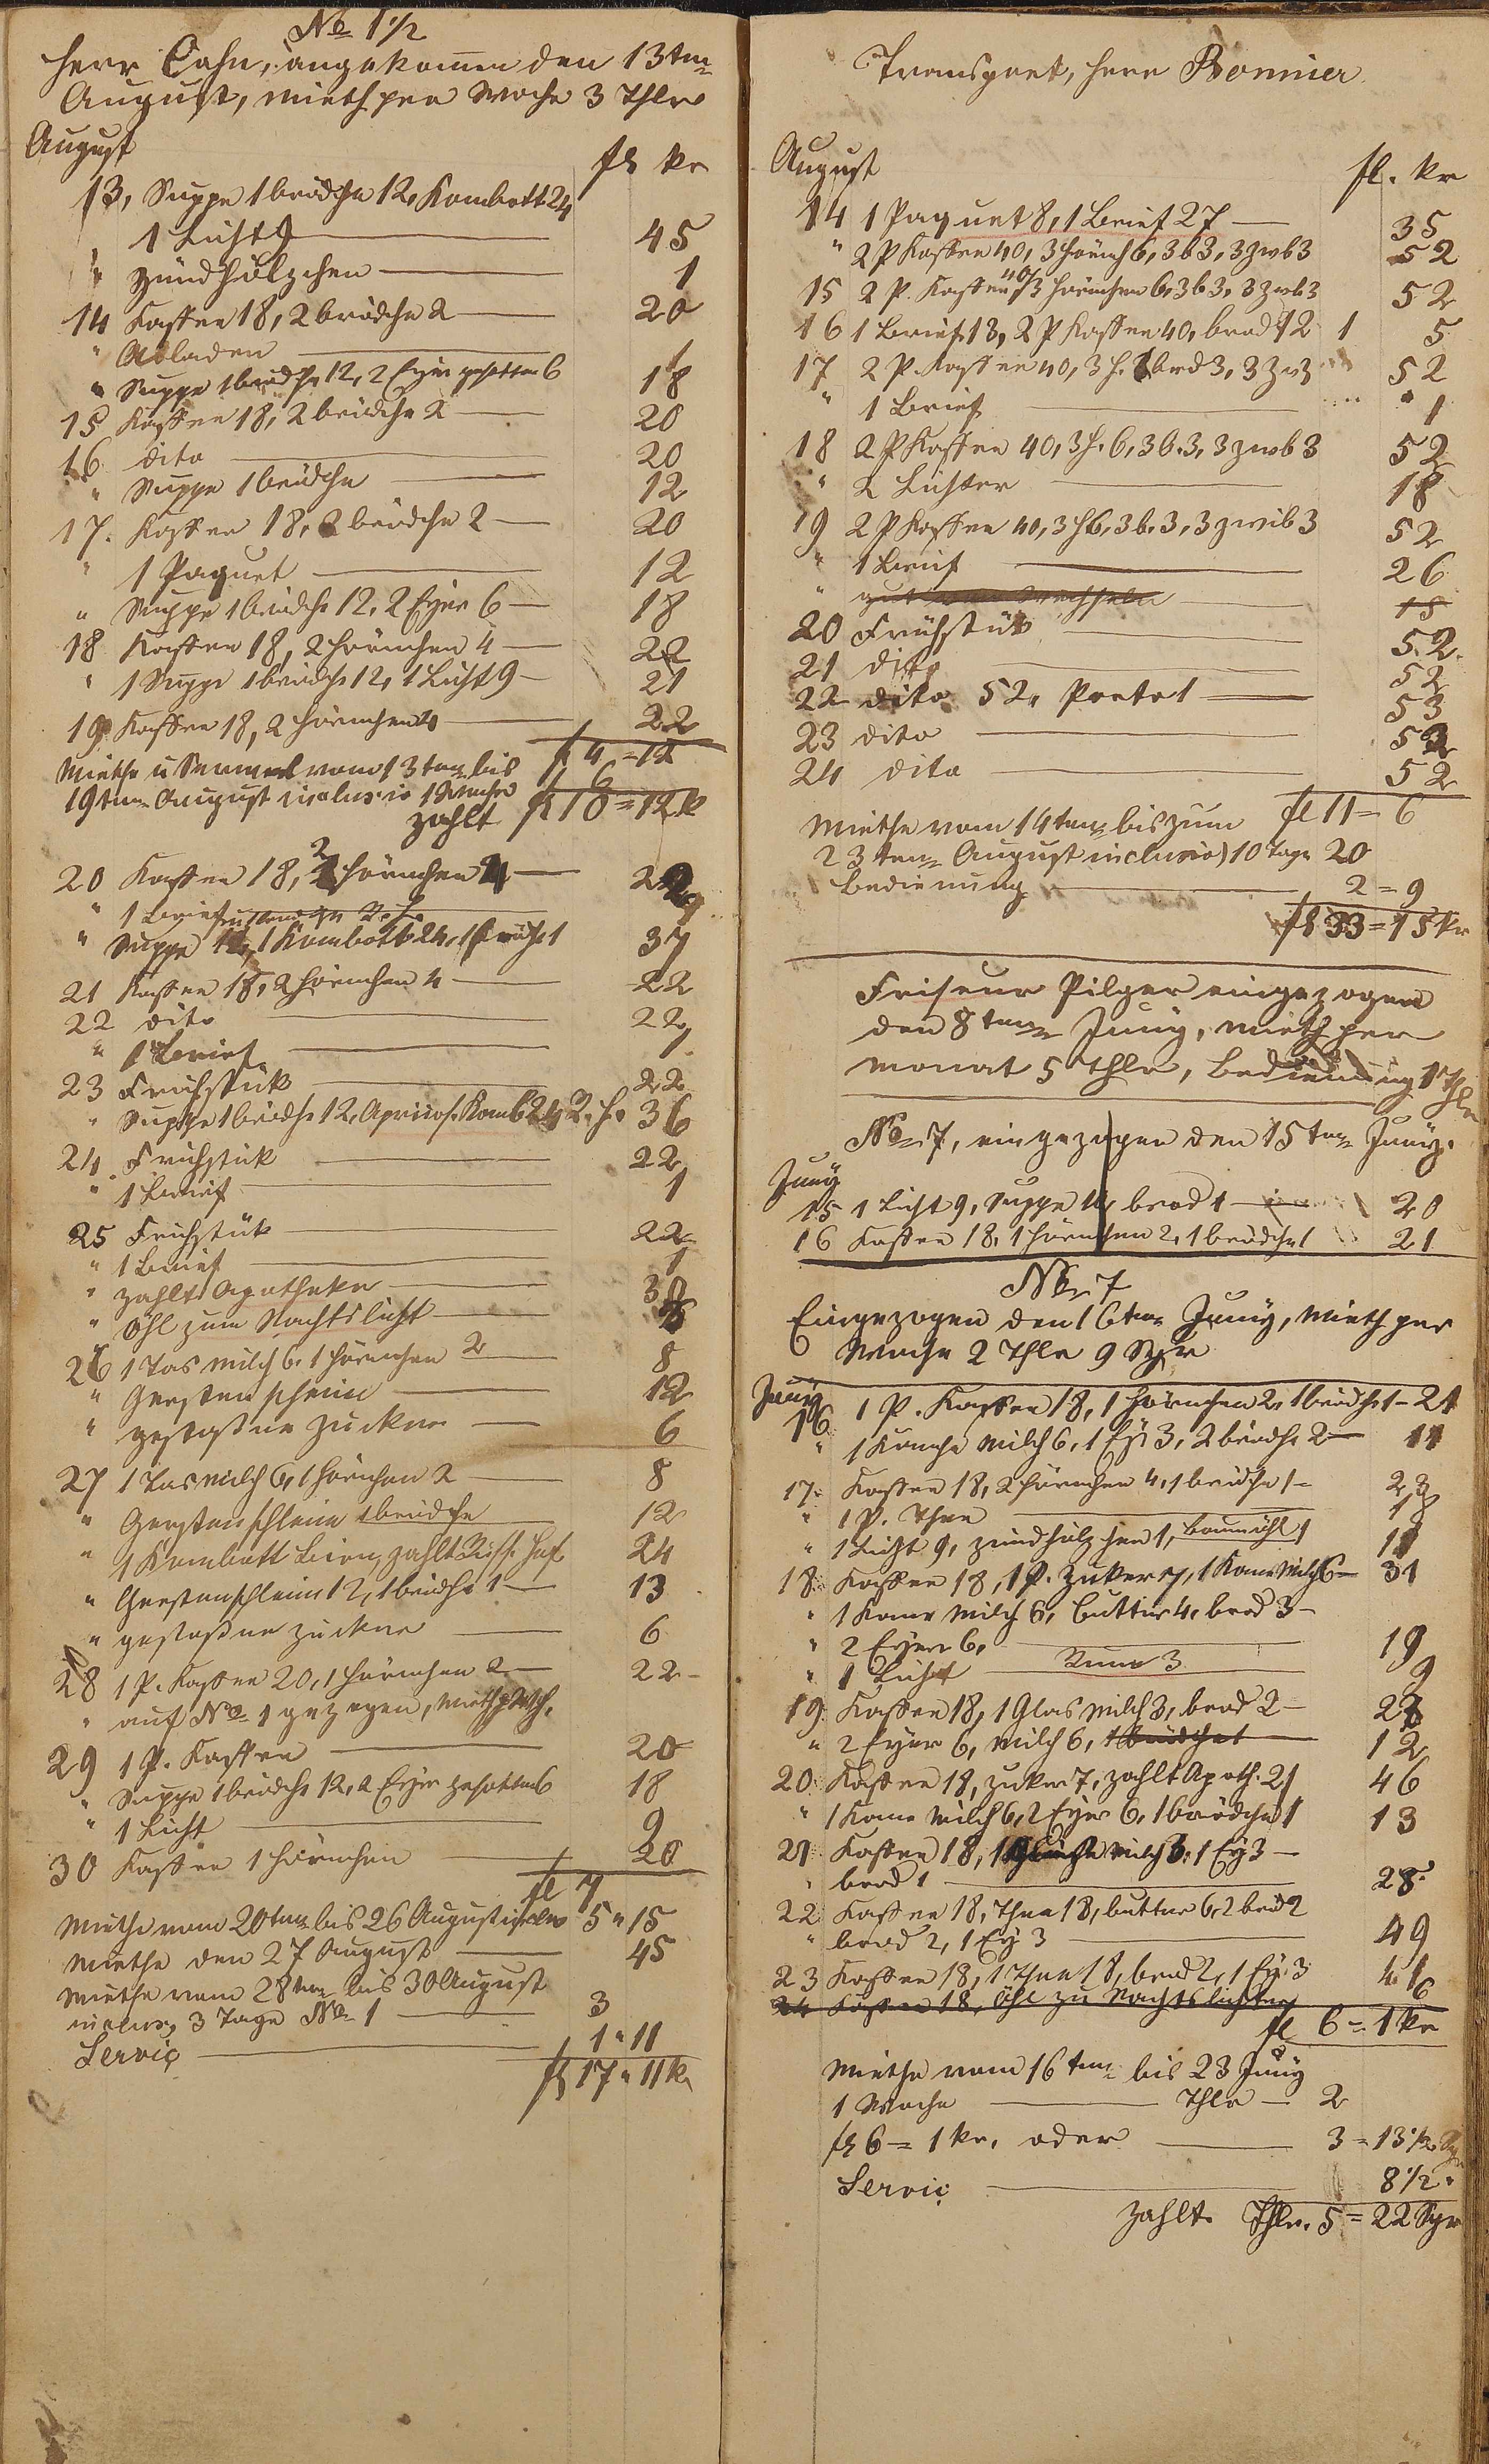 No 1 1/2
Herr Cahn, angekommen den 13ten
August, mieth per Woche 3 Thlr
August
fl kr
13, Suppe 1 brödchen 12, Kombott 24
" 1 Licht 9 — 45
" Zündhölzchen — 1
14 Kaffee 18, 2 brödchen 2 — 20
" Abladen —
" Suppe 1 brödch 12, 2 Eyer gesotten 6 18
15 Kaffee 18, 2 brödchen 2 — 20
16 dito — 20
" Suppe 1 brödchen — 12
17. Kaffee 18, 2 brödchen 2 — 20
" 1 Paquet — 12
" Suppe 1 brödchen 12, 2 Eyer 6 — 18
18 Kaffee 18, 2 hörnchen 4 — 22
" 1 Suppe 1 brödchen 12, 1 Licht 9 — 21
19 Kaffee 18, 2 hörnchen 4 — 22
fl 4 = 12
Miethe u vom 13ten bis 6
19ten August inclusiv 1 Woche
zahlt fl 10 = 12 k
20 Kaffee 18, 2 hörnchen 4 — 22
" 1 Brief
" Suppe 12, 1 Kombott 24, 1 brödch 1 37
21 Kaffee 18, 2 hörnchen 4 — 22
22 dito — 22
" 1 Brief — 1
23 Frühstük — 22
" Suppe 1 brödch 12, Apricos. Komb 24 R. H. 36
24 Frühstük — 22
" 1 Brief — 1
25 Frühstük — 22
" 1 Brief — 1
" zahlt Apotheke —
" Öhl zum Nachtslicht —
26 1 Tas Milch 6, 1 hörnchen 2 — 8
" Gerstenschleim — 12
" gestoßne Zucker — 6
27 1 Tas Milch 6, 1 hörnchen 2 — 8
" Gerstenschleim 1 brödche 12
" 1 Kombott Birn, zahlt Russ. Hof 24
" Gerstenschleim 12, 1 brödch 1 — 13
" gestoßne Zucker — 6
28 1 P. Kaffee 20, 1 hörnchen 2 — 22 -
" auf No 1 gezogen, Mieth p Wch.
29 1 P. Kaffee — 20
" Suppe 1 brödch 12, 2 Eyer gesotten 6 18
" 1 Licht — 9
30 Kaffee 1 hörnchen — 20
fl 7
Miethe vom 20ten bis 26 August inclus 5 " 15
Miethe den 27 August — 45
Miethe vom 28ten bis 30 August
inclus, 3 Tage No 1 — 3
Serviç — 1 " 11
fl 17 " 11 k
Transport, Herr Bonnier
August
fl. kr
14 1 Paquet 8, 1 Brief 27 — 35
" 2 P Kaffee 40, 3 hörnch 6, 3 b 3, 3 zwb 3 52
15 2 P. Kaffee 40, 3 hörnchen 6, 3 b 3, 3 zwb 3 52
16 1 Brief 13, 2 P Kaffee 40, brod 12 1 5
17 2 P. Kaffee 40, 3 h. 6 brd 3, 3 zw 3 52
" 1 Brief — " 1
18 2 P Kaffee 40, 3 h. 6, 3 b. 3, 3 zwb 3 52
" 2 Lichter — 18
19 2 P Kaffee 40, 3 h 6, 3 b. 3, 3 zwib 3 52
" 1 Brief — 26
" 15
20 Frühstük — 52.
21 dito — 52
22 dito 52, Porto 1 — 53
23 dito — 52
24 dito — 52
Miethe vom 14ten bis zum fl 11 = 6
23ten August inclusiv) 10 Tage 20
Bedienung — 2 = 9
fl 33 = 15 kr
Friseur Pilger eingezogen
den 8ten Juny, mieth per
monat 5 Thlr, Bedienung 1 Thlr
No 7, eingezogen den 15ten Juny.
Juny
15 1 Licht 9, Suppe brod 1 — 20
16 Kaffee 18, 1 hörnchen 2, 1 brödche 1 21
No 7
Eingezogen den 16ten Juny, Mieth per
Woche 2 Thlr 9 Sgr
Juny
16 1 P. Kaffee 18, 1 hörnchen 2, 1 brödch 1 — 21
" 1 Milch 6, 1 Ey 3, 2 brödch 2 — 11
17. Kaffee 18, 2 hörnchen 4, 1 brödche 1 — 23
" 1 P. Thee — 18
" 1 Licht 9, zündhölzchen 1, Baumöhl 1 11
18. Kaffee 18, 1 P. Zuker 7, 1 Kane Milch 6 — 31
" 1 Kane Milch 6, Butter 4, brod 3 —
" 2 Eyer 6, Rum 3 19
" 1 Licht — 9
19. Kaffee 18, 1 Glas Milch 3, brod 2 — 23
" 2 Eyer 6, Milch 6, 1 brödche 1 — 12
20. Kaffee 18, Zuker 7, zahlt Apoth. 21 46
" 1 Kane Milch 6, 2 Eyer 6, 1 brödche 1 13
21 Kaffee 18, 1 Milch 3, 1 Ey 3 —
" brod 1 — 25
22 Kaffee 18, Thee 18, butter 6, 2 brod 2
" brod 2, 1 Ey 3 — 49
23 Kaffee 18, 1 Thee 18, brod 2, 1 Ey 3 41
24 Kaffee 18, Öhl zu Nachtslichter 6
fl 6 = 1 kr
Miethe vom 16ten bis 23 Juny
1 Woche — Thlr — 2
fl 6 = 1 kr. oder — 3 = 13 1/2 Sgr
Serviç — 8 1/2 "
zahlt Thlr. 5 = 22 Sgr